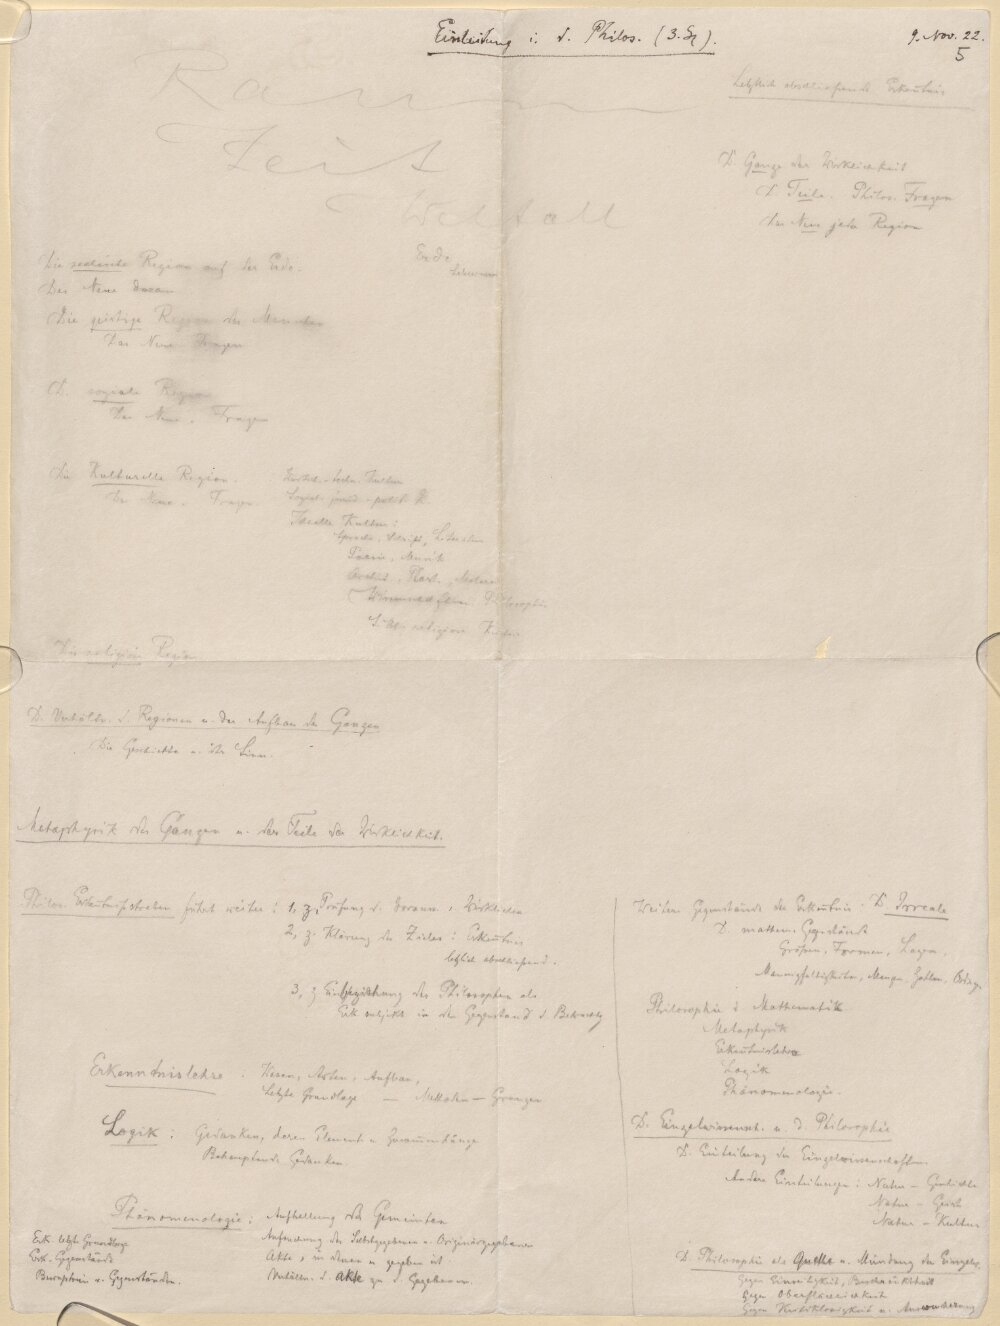 Einleitung i. d. Philos. (3. St).
9. Nov. 22.
5
Raum
Zeit
Weltall
Letztlich abschließende Erkenntnis
D. Ganze der Wirklichkeit
D. Teile. Philos. Fragen
Das Neue jeder Region
Erde
Lebewesen
Die seelische Region auf der Erde.
Das Neue daran
Die geistige Region des Menschen
Das Neue Fragen
D. soziale Region
Das Neue. Fragen
Die Kulturelle Region.
Das Neue. Fragen
Wirtsch.-techn. Kultur
Soziale jurid.-polit. K.
Ideelle Kultur:
Sprache, Schrift, Literatur
Poesie, Musik
Archit., Plast., Malerei
Wissenschaften Philosophie
Sittl. religiöse Kultur
Die religiöse Region
D. Verhältn. d. Regionen u. der Aufbau des Ganzen
Die Geschichte u. ihr Sinn.
Metaphysik des Ganzen u. der Teile der Wirklichkeit.
Philos. Erkenntnisstreben führt weiter: 1, z. Prüfung d. Voraus. Wirklichen
2, z. Klärung des Zieles: Erkenntnis
letztlich abschließend.
3, z Einbeziehung des Philosophen als
Erk. subjekt in den Gegenstand d. Betrachtg
Erkenntnislehre: Wesen, Arten, Aufbau,
Letzte Grundlage — Methoden — Grenzen
Logik: Gedanken, deren Element u Zusammenhänge
Behauptende Gedanken.
Phänomenologie: Aufhellung des Gemeinten
Aufsuchung des Selbstgegebenen u. Originärgegebenen
Akte, in denen es gegeben ist
Verhältn. d. Akte zu d. Gegebenen.
Erk. letzte Grundlage
Erk. Gegenstände
Bewußtsein v. Gegenständen.
Weitere Gegenstände der Erkenntnis. D. Irreale
D. mathem. Gegenstände
Größen, Formen, Lagen,
Mannigfaltigkeiten, Mengen, Zahlen, Ordngn
Philosophie d Mathematik
Metaphysik
Erkenntnislehre
Logik
Phänomenologie.
D. Einzelwissensch. u. d. Philosophie
D. Einteilung der Einzelwissenschaften
Andere Einteilungen: Natur — Geschichte
Natur — Geist
Natur — Kultur
D. Philosophie als Quelle u. Mündung der Einzelw.
gegen Einseitigkeit, Beschränktheit
gegen Oberflächlichkeit
gegen Kritiklosigkeit u. Anwucherung